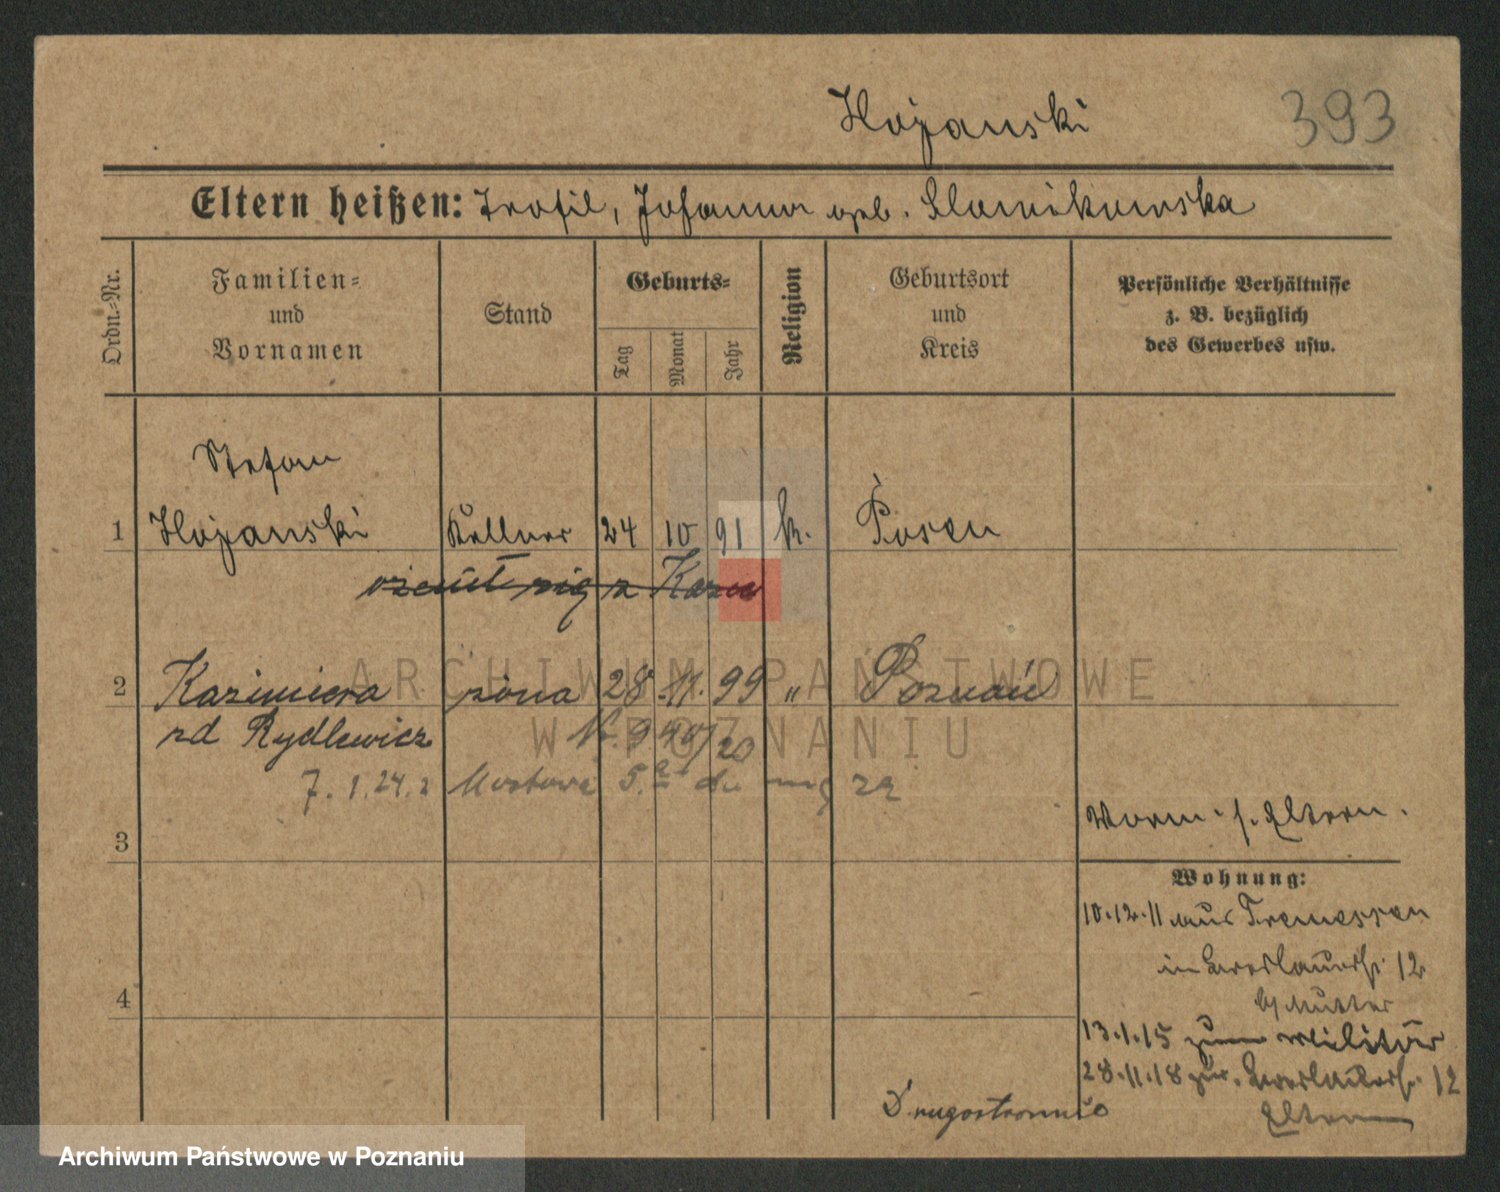 Hojanski 393
Eltern heißen: Teofil, Johanna geb. Slowikowska
Ordn.-Nr.
Familien-
und
Vornamen
Stand
Geburts-
Tag
Monat
Jahr
Religion
Geburtsort
und
Kreis
Persönliche Verhältnisse
z. B. bezüglich
des Gewerbes usw.
Stefan
1 Hojanski Kellner 24 10 91 k. Posen
ożenił się z Kazu
2 Kazimiera żona 28. 11. 99 " Poznań
zd Rydlewicz
7. 1. 24. z Mostowa 5.
3
Worm. s. Eltern.
Wohnung:
10.12.11 aus Tremessen
in Breslauerstr. 12
b/ Mutter
4
13.1.15 zum Militär
28.11.18 zur. Breslauerstr. 12
Eltern
Drugostronnie
ARCHIWUM PAŃSTWOWE
W POZNANIU
Archiwum Państwowe w Poznaniu